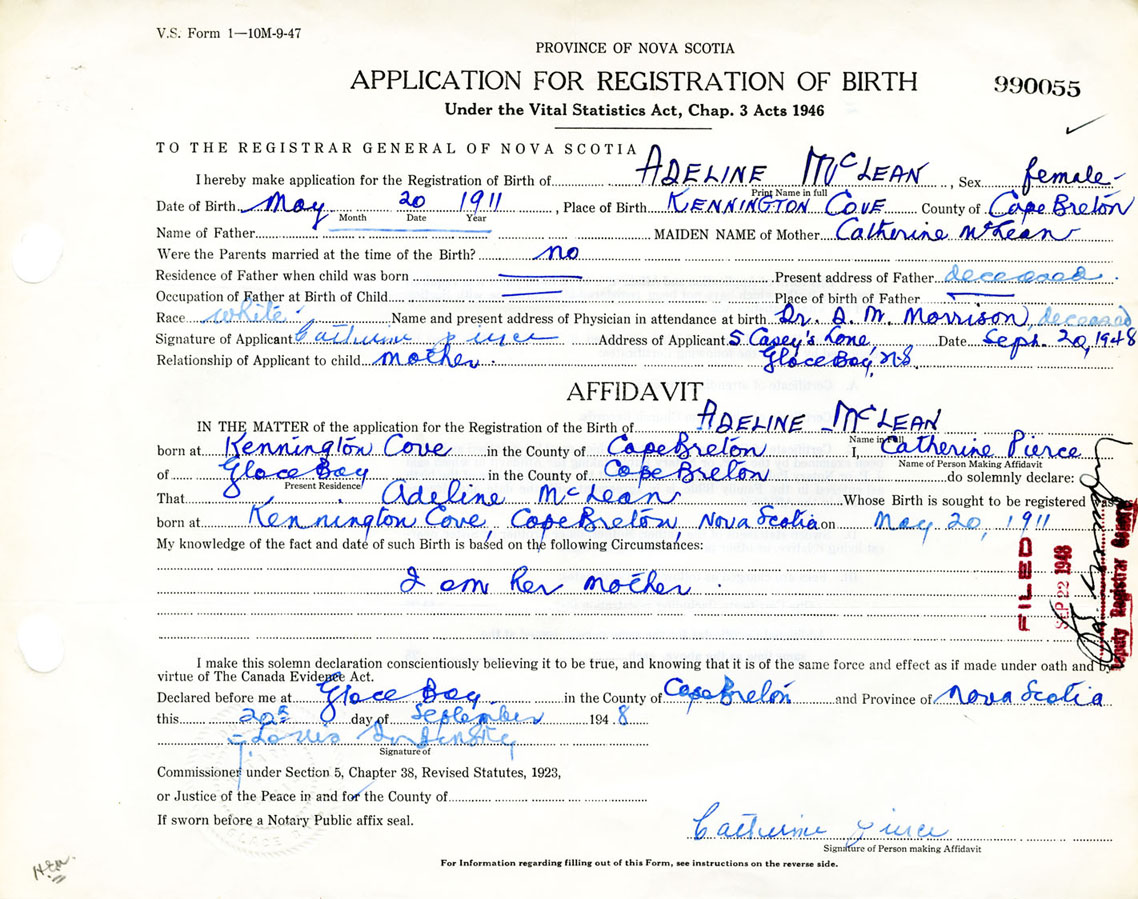 V.S. Form 1—10M-9-47
PROVINCE OF NOVA SCOTIA
APPLICATION FOR REGISTRATION OF BIRTH
990055
Under the Vital Statistics Act, Chap. 3 Acts 1946
TO THE REGISTRAR GENERAL OF NOVA SCOTIA
I hereby make application for the Registration of Birth of ADELINE McLEAN, Sex female
Print Name in full
Date of Birth May 20 1911, Place of Birth KENNINGTON COVE County of Cape Breton
Month Date Year
Name of Father MAIDEN NAME of Mother Catherine McLean
Were the Parents married at the time of the Birth? no
Residence of Father when child was born — Present address of Father deceased.
Occupation of Father at Birth of Child — Place of birth of Father —
Race white Name and present address of Physician in attendance at birth Dr. D. M. Morrison, deceased
Signature of Applicant Catherine Pierce Address of Applicant 5 Casey's Lane, Date Sept. 20, 1948
Relationship of Applicant to child mother. Glace Bay, N.S.
AFFIDAVIT
IN THE MATTER of the application for the Registration of the Birth of ADELINE McLEAN
Name in full
born at Kennington Cove in the County of Cape Breton I, Catherine Pierce
Name of Person Making Affidavit
of Glace Bay in the County of Cape Breton do solemnly declare:
Present Residence
That Adeline McLean Whose Birth is sought to be registered was
born at Kennington Cove, Cape Breton, Nova Scotia on May 20, 1911
My knowledge of the fact and date of such Birth is based on the following Circumstances:
I am her mother.
FILED
SEP 22 1948
Deputy Registrar General
I make this solemn declaration conscientiously believing it to be true, and knowing that it is of the same force and effect as if made under oath and by
virtue of The Canada Evidence Act.
Declared before me at Glace Bay in the County of Cape Breton and Province of Nova Scotia
this 20th day of September 1948
Louis
Signature of
Commissioner under Section 5, Chapter 38, Revised Statutes, 1923,
or Justice of the Peace in and for the County of
If sworn before a Notary Public affix seal.
Catherine Pierce
Signature of Person making Affidavit
For Information regarding filling out of this Form, see instructions on the reverse side.